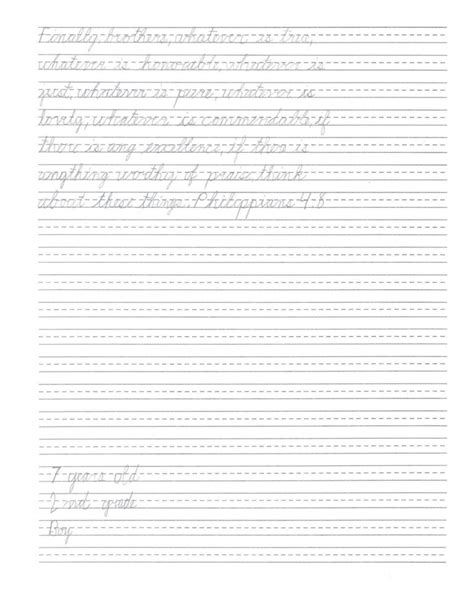 Finally, brothers, whatever is true,
whatever is honorable, whatever is
just, whatever is pure, whatever is
lovely, whatever is commendable, if
there is any excellence, if there is
anything worthy of praise, think
about these things. Philippians 4:8
7 years old
2nd grade
Boy